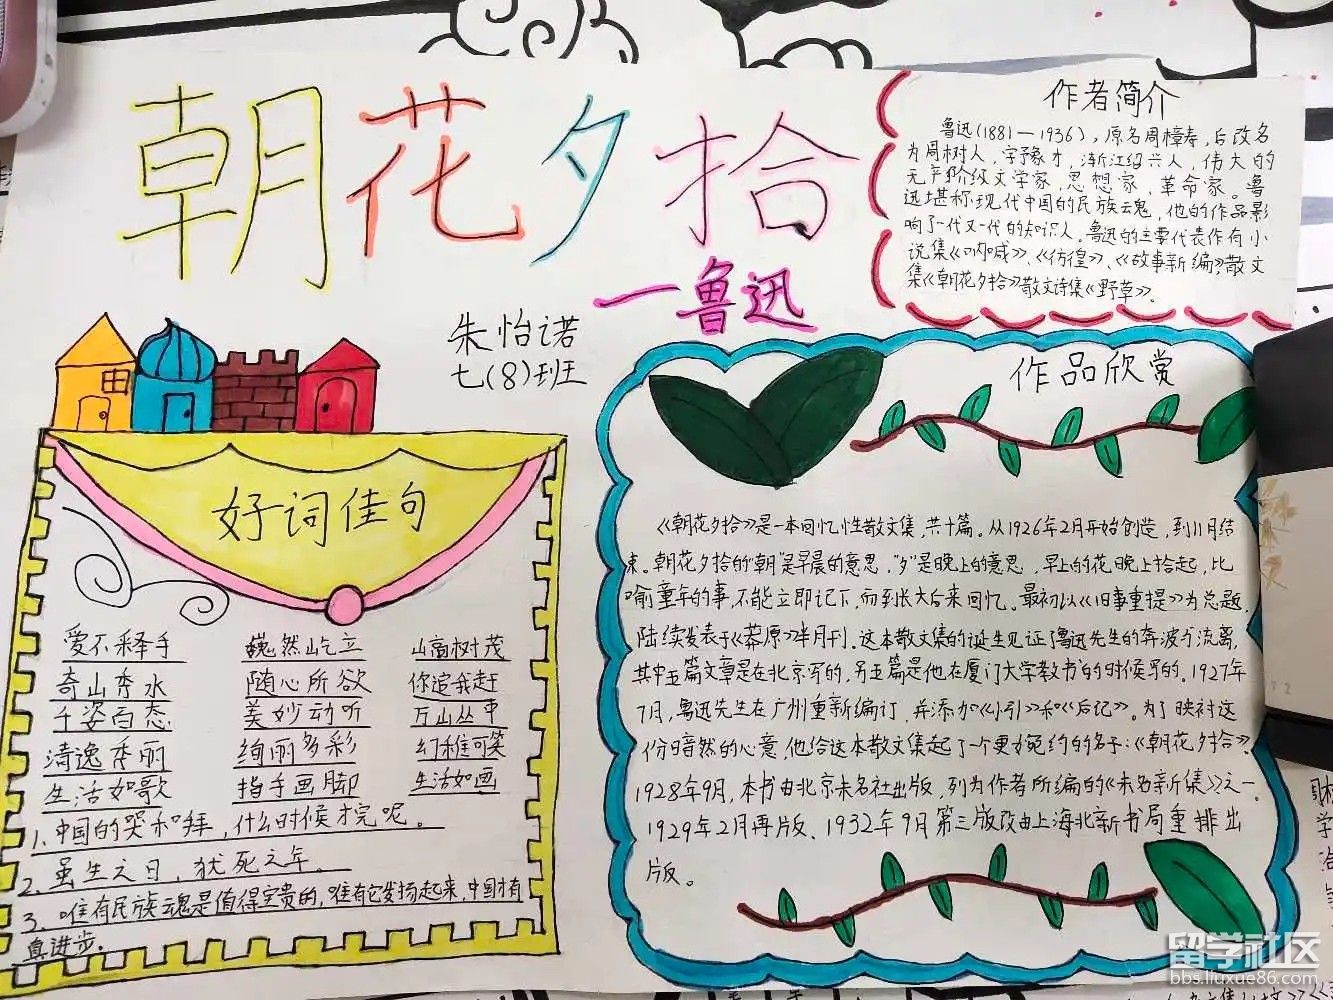 朝花夕拾
一鲁迅
朱怡诺
七(8)班
作者简介
鲁迅(1881—1936)，原名周樟寿，后改名
为周树人，字豫才，浙江绍兴人，伟大的
无产阶级文学家，思想家，革命家。鲁
迅堪称现代中国的民族云魂，他的作品影
响了一代又一代的知识人。鲁迅的主要代表作有小
说集《呐喊》、《彷徨》、《故事新编》散文
集《朝花夕拾》散文诗集《野草》。
好词佳句
爱不释手 巍然屹立 山高树茂
奇山秀水 随心所欲 你追我赶
千姿百态 美妙动听 万山丛中
清逸秀丽 绚丽多彩 幻稚可笑
生活如歌 指手画脚 生活如画
1.中国的哭和拜，什么时候才完呢。
2.虽生之日，犹死之年。
3.唯有民族云魂是值得宝贵的，唯有它发扬起来，中国才有
真进步。
作品欣赏
《朝花夕拾》是一本回忆性散文集，共十篇。从1926年2月开始创造，到11月结
束。朝花夕拾的"朝"是早晨的意思，"夕"是晚上的意思，早上的花晚上拾起，比
喻童年的事，不能立即记下，而到长大后来回忆。最初以《旧事重提》为总题，
陆续发表于《莽原》半月刊。这本散文集的诞生见证了鲁迅先生的奔波与流离，
其中五篇文章是在北京写的，另五篇是他在厦门大学教书的时候写的。1927年
7月，鲁迅先生在广州重新编订，并添加《小引》和《后记》。为了映衬这
份暗然的心意，他给这本散文集起了一个更为婉约的名子：《朝花夕拾》。
1928年9月，本书由北京未名社出版，列为作者所编的《未名新集》之一。
1929年2月再版、1932年9月第三版改由上海北新书局重排出
版。
留学社区
bbs.liuxue86.com